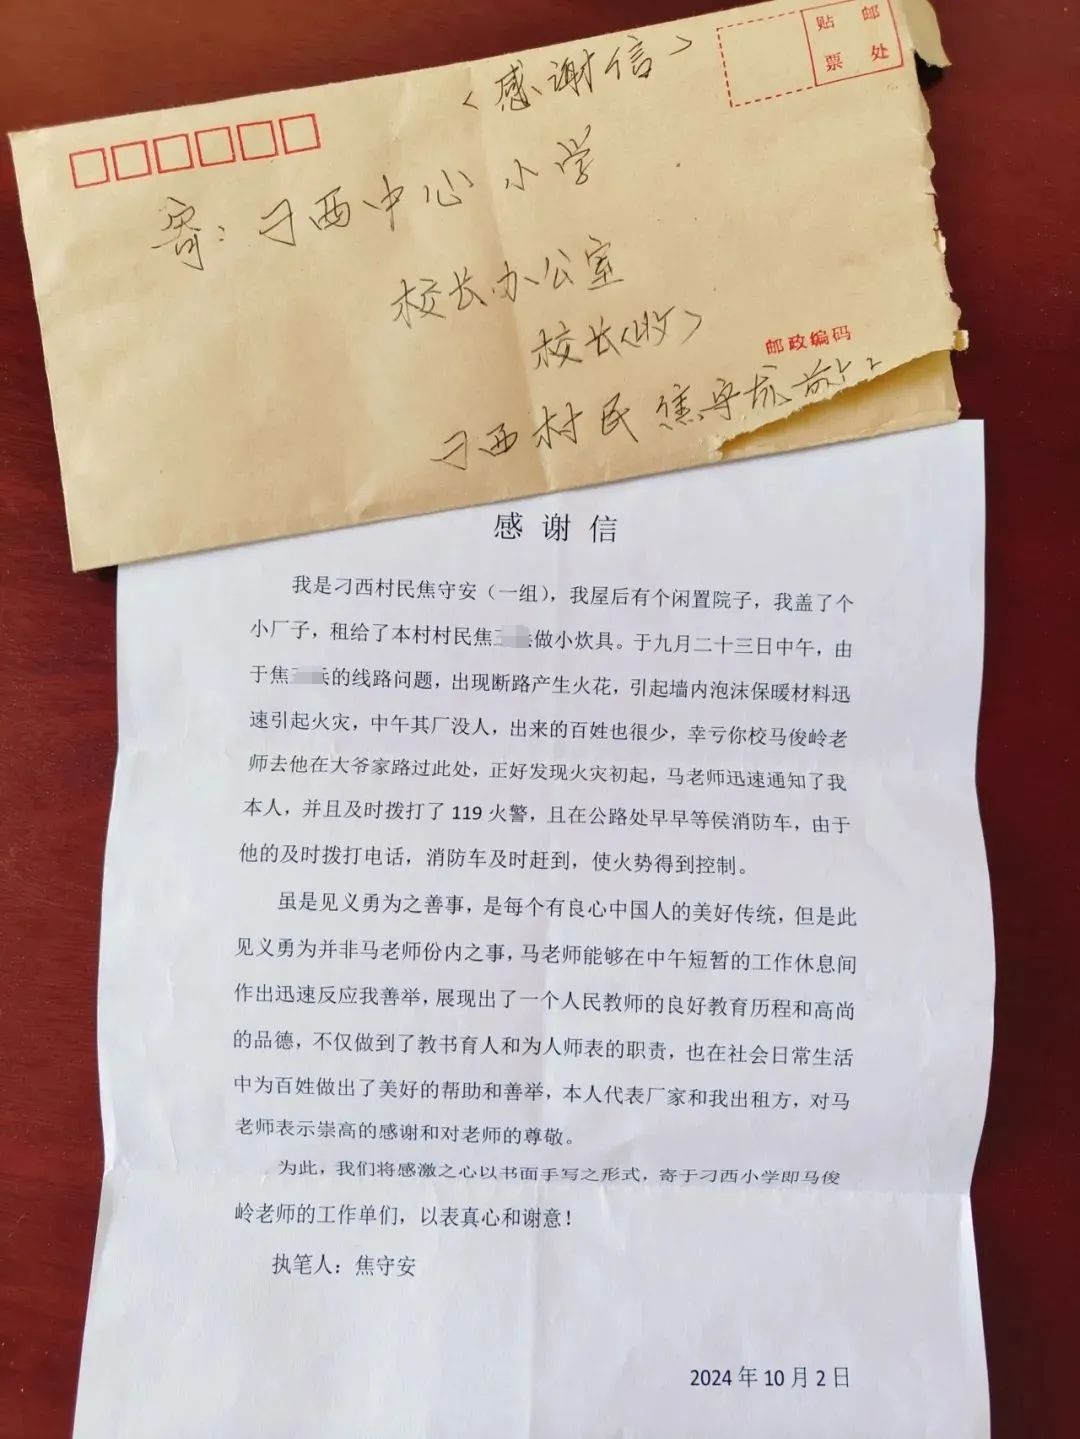 贴 邮
票 处
<感谢信>
寄：刁西中心小学
校长办公室
校长<收>
邮政编码
刁西村民 焦守
感谢信
我是刁西村民焦守安（一组），我屋后有个闲置院子，我盖了个
小厂子，租给了本村村民焦 做小炊具。于九月二十三日中午，由
于焦 的线路问题，出现断路产生火花，引起墙内泡沫保暖材料迅
速引起火灾，中午其厂没人，出来的百姓也很少，幸亏你校马俊岭老
师去他在大爷家路过此处，正好发现火灾初起，马老师迅速通知了我
本人，并且及时拨打了 119 火警，且在公路处早早等侯消防车，由于
他的及时拨打电话，消防车及时赶到，使火势得到控制。
虽是见义勇为之善事，是每个有良心中国人的美好传统，但是此
见义勇为并非马老师份内之事，马老师能够在中午短暂的工作休息间
作出迅速反应我善举，展现出了一个人民教师的良好教育历程和高尚
的品德，不仅做到了教书育人和为人师表的职责，也在社会日常生活
中为百姓做出了美好的帮助和善举，本人代表厂家和我出租方，对马
老师表示崇高的感谢和对老师的尊敬。
为此，我们将感激之心以书面手写之形式，寄于刁西小学即马俊
岭老师的工作单们，以表真心和谢意！
执笔人：焦守安
2024 年 10 月 2 日